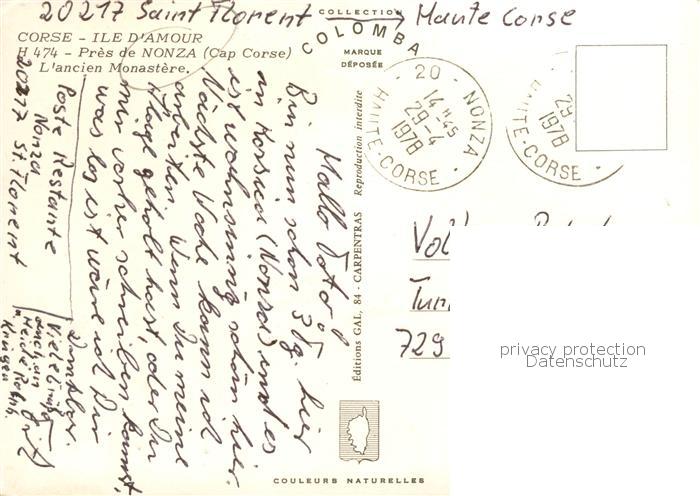 20217 Saint Florent → Haute Corse
COLLECTION
COLOMBA
MARQUE
DÉPOSÉE
CORSE - ILE D'AMOUR
H 474 - Près de NONZA (Cap Corse)
L'ancien Monastère.
20 - NONZA
14 H 45
29-4
1978
HAUTE-CORSE
29
1978
HAUTE-CORSE
Hallo
Bin nun schon 3 Tg. hier
in Korsika (Nonza) und es
ist wahnsinnig schön hier.
Nächste Woche kann ich
arbeiten. Wenn Du meine
geholt hast, oder Du
mir vorher schreiben kannst,
was los ist wäre ich Dir
Dankbar.
Viele Grüße
auch an
Heike
Poste Restante
Nonza
20217 St. Florent
Éditions GAL, 84 - CARPENTRAS Reproduction interdite
729
privacy protection
Datenschutz
COULEURS NATURELLES